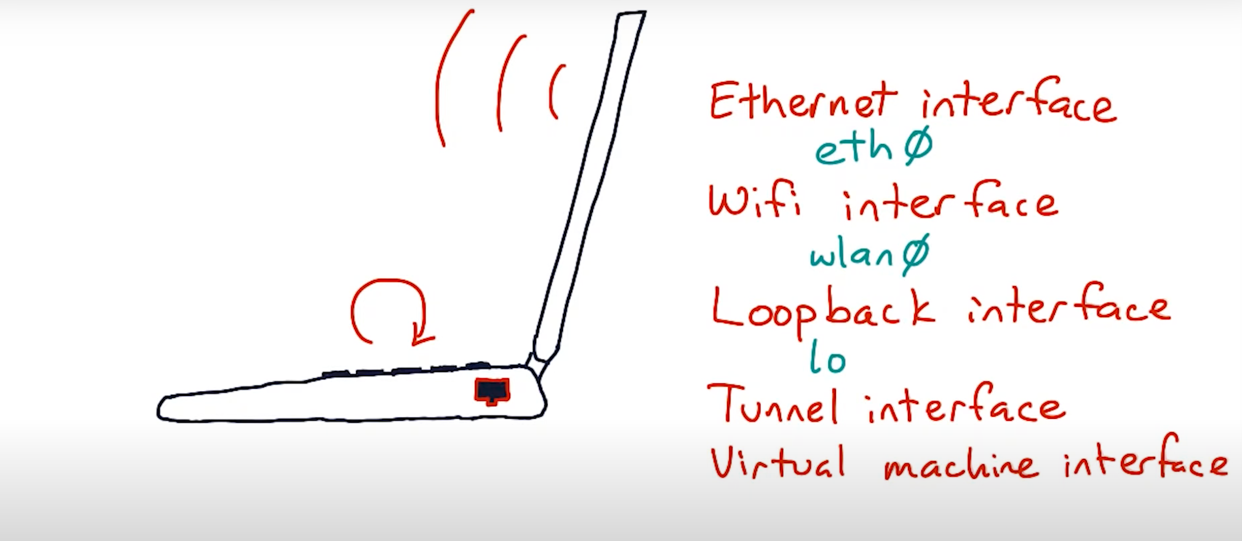 Ethernet interface
eth0
Wifi interface
wlan0
Loopback interface
lo
Tunnel interface
Virtual machine interface